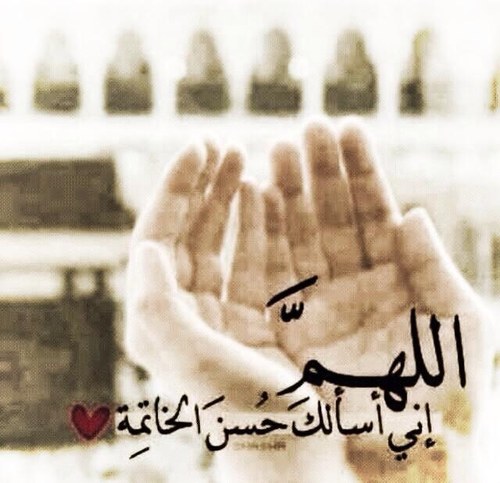 اللهمَّ
إني أسألكَ حُسنَ الخاتمِة